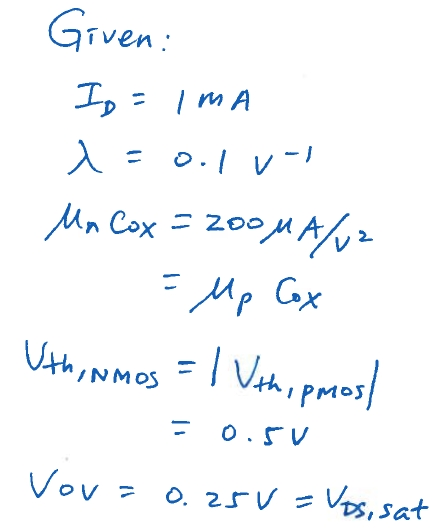 Given:
I_D = 1 mA
λ = 0.1 V⁻¹
μn Cox = 200 μA/V²
= μp Cox
Vth,NMOS = |Vth,pmos|
= 0.5V
Vov = 0.25V = VDS,sat